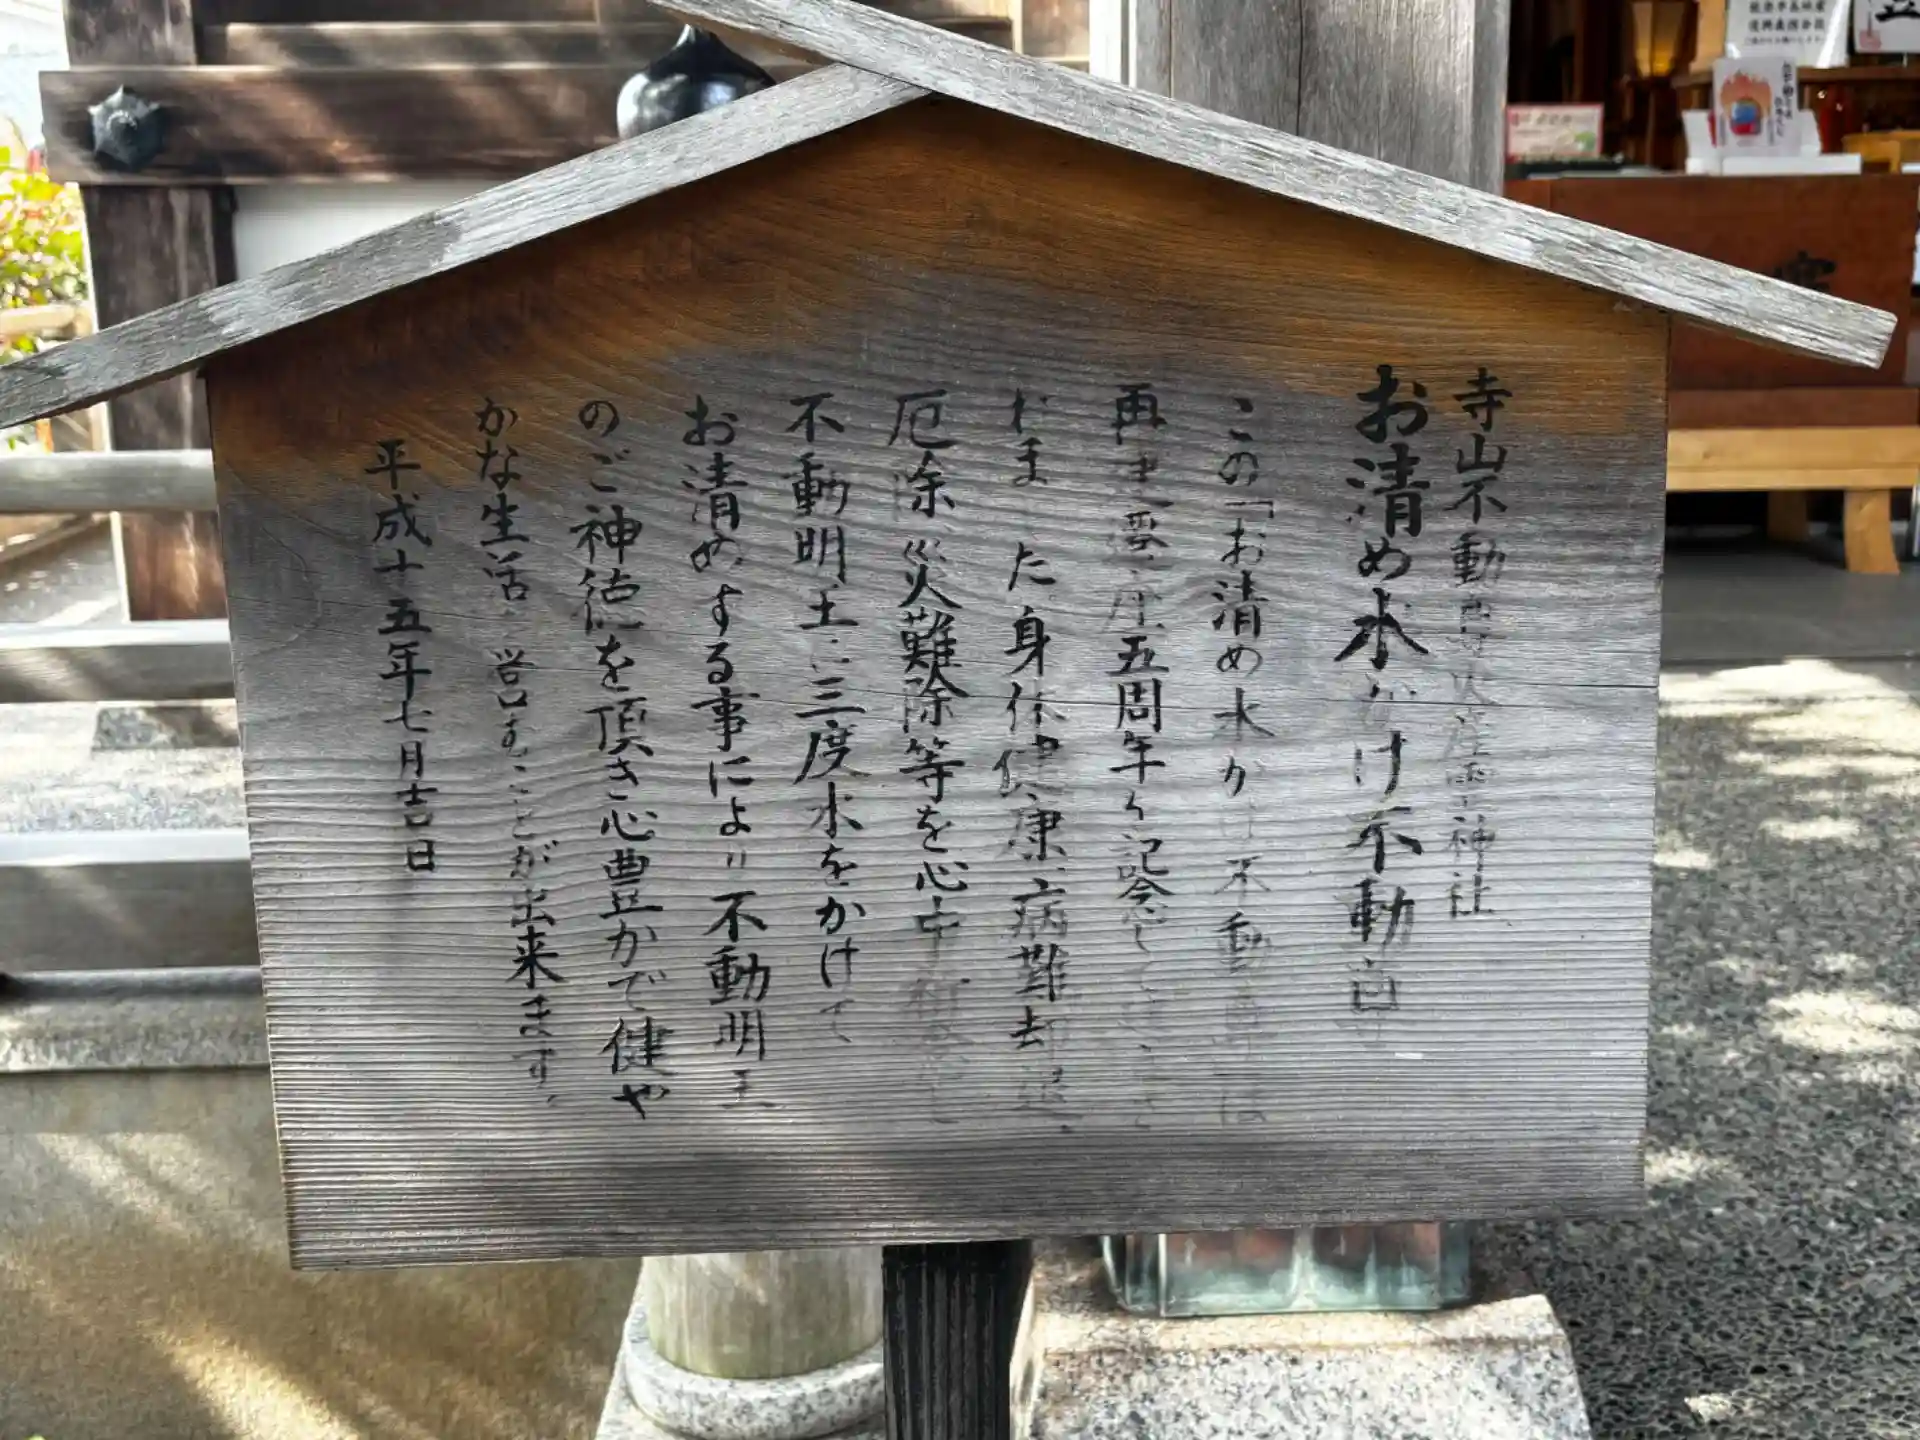 寺山不動 神社
お清め水かけ不動尊
この「お清め水かけ不動尊」は
再 遷座五周年を記念して
ました身体健康、病難却退、
厄除、災難除等を心中祈念し
不動明王に三度水をかけて
お清めする事により不動明王
のご神徳を頂き心豊かで健や
かな生活を営むことが出来ます。
平成十五年七月吉日